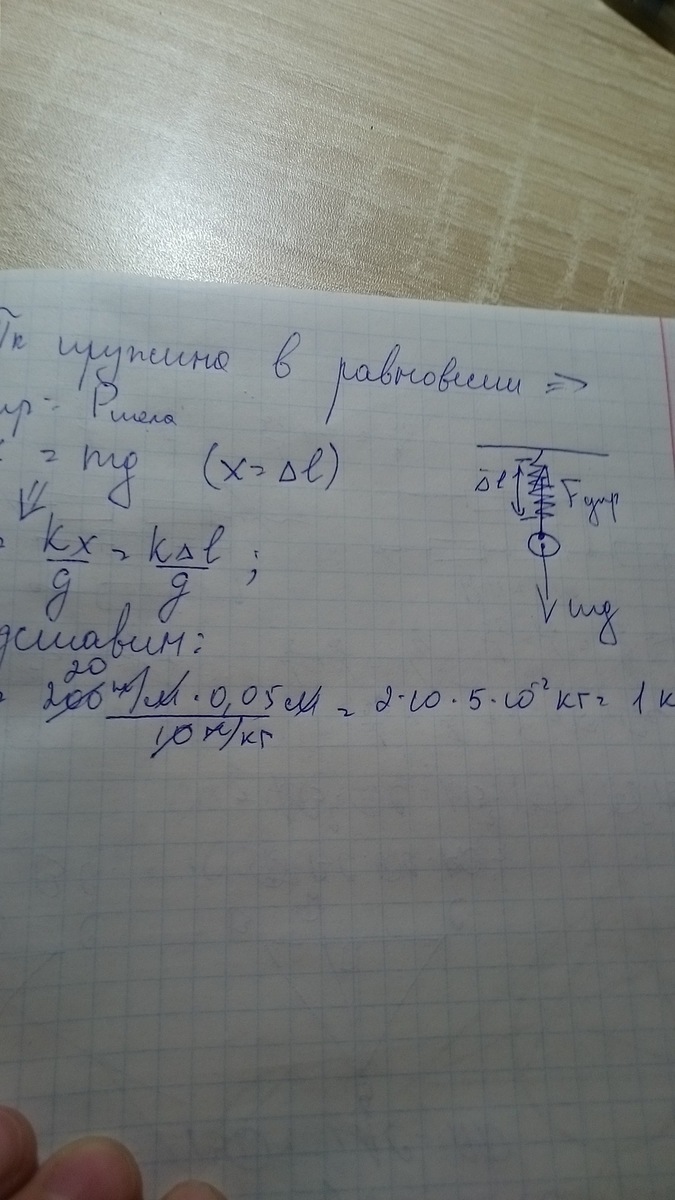 Тк пружина в равновесии =>
упр = Pтела
x = mg (x = Δl)
⇓
= kx/g = kΔl/g ;
Δl Fупр
mg
дставим:
20
= 200 н/м · 0,05 м / 10 н/кг = 2·10·5·10⁻² кг = 1 к